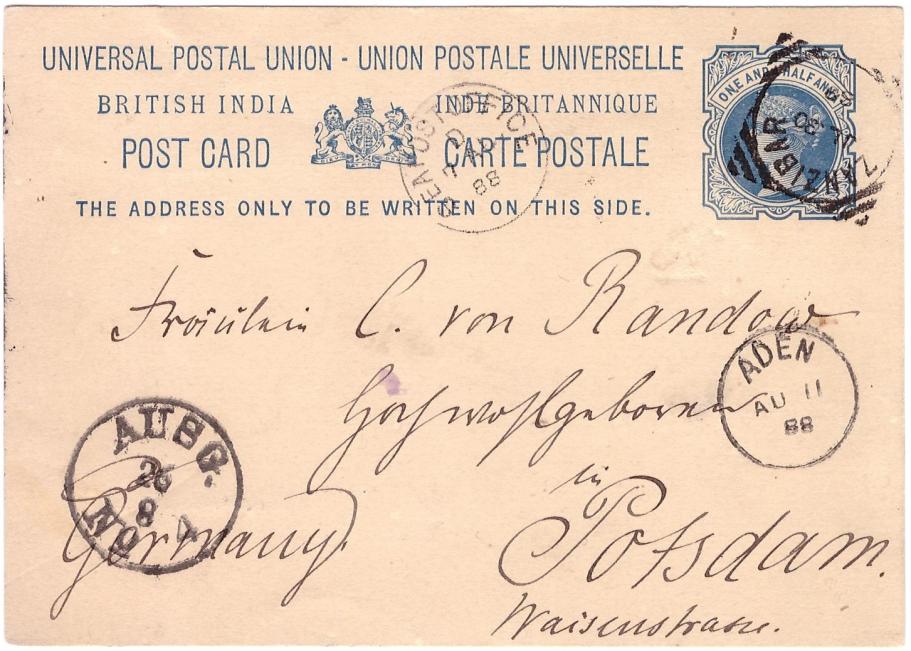 UNIVERSAL POSTAL UNION - UNION POSTALE UNIVERSELLE
BRITISH INDIA INDE BRITANNIQUE
POST CARD CARTE POSTALE
THE ADDRESS ONLY TO BE WRITTEN ON THIS SIDE.
ONE AND A HALF ANNA
ZANZIBAR
SEA POST OFFICE
88
Fräulein C. von Randow
Hochwohlgeboren
ADEN
AU 11
88
in
Potsdam.
Waisenstrasse.
AUSG.
26
8
Germany